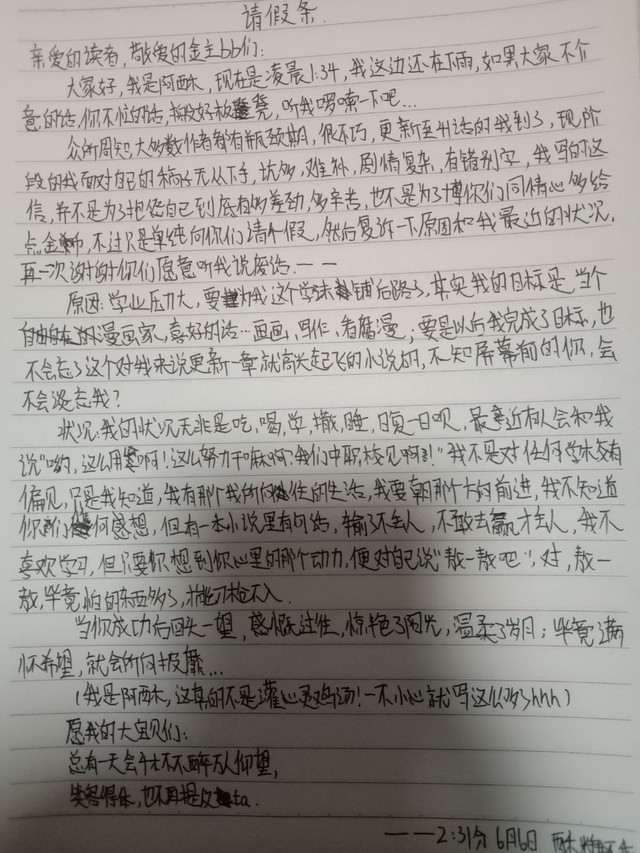 请假条.
亲爱的读者,敬爱的金主bb们:
大家好,我是阿酥,现在是凌晨1:34,我这边还在下雨,如果大家不介
意的话,你不忙的话,搬好板凳,听我啰嗦一下吧...
众所周知,大多数作者都有瓶颈期,很不巧,更新至刊话的我到了,现阶
段的我面对自己的稿子无从下手,坑多,难补,剧情复杂,有错别字,我写的这
信,并不是为了抱怨自己到底有多差劲,多辛苦,也不是为了博你们同情心多给
点金币,不过只是单纯向你们请个假,然后复述一下原因和我最近的状况,
再一次谢谢你们愿意听我说废话.——
原因:学业压力大,要为我这个学沫铺后路了,其实我的目标是当个
自由自在的漫画家,喜好的话…画画,写作,看腐漫;要是以后我完成了目标,也
不会忘了这个对我来说更新一章就高兴起飞的小说的,不知屏幕前的你,会
不会淡忘我?
状况:我的状况无非是吃,喝,学,撒,睡,日复一日呗,最近有人会和我
说“哟,这么用劲啊!这么努力干嘛啊?我们中职校见啊!”我不是对任何学校有
偏见,只是我知道,我有那个我所向往的生活,我要朝那个方向前进,我不知道
你们何感想,但有一本小说里有句话,输了不丢人,不敢去赢才丢人,我不
喜欢学习,但只要你想到你心里的那个动力,便对自己说“熬一熬吧”,对,熬一
熬,毕竟怕的东西多了,枪不入.
当你成功后回头一望,感慨过往,惊艳了阳光,温柔了岁月;毕竟满
怀希望,就会所向披靡...
(我是阿酥,这真的不是灌心灵鸡汤!一不小心就写这么多hhh)
愿我的大宝贝们:
总有一天会千不万人仰望,
失态得体,也不再提及ta.
——2:31分 6月6日